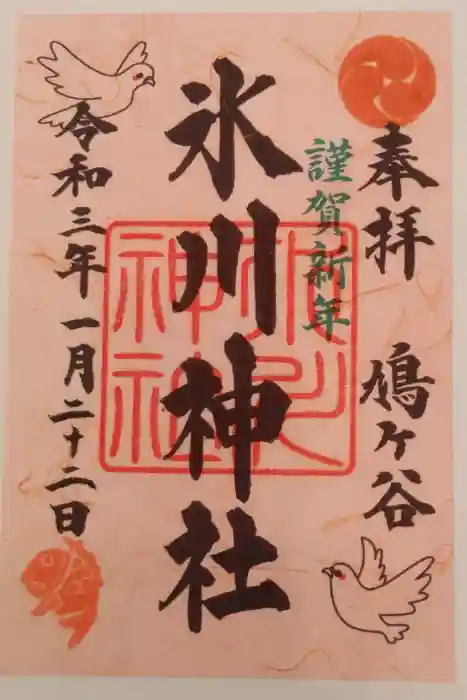 奉拝
鳩ヶ谷
謹賀新年
氷川神社
氷川
神社
令和三年一月二十二日